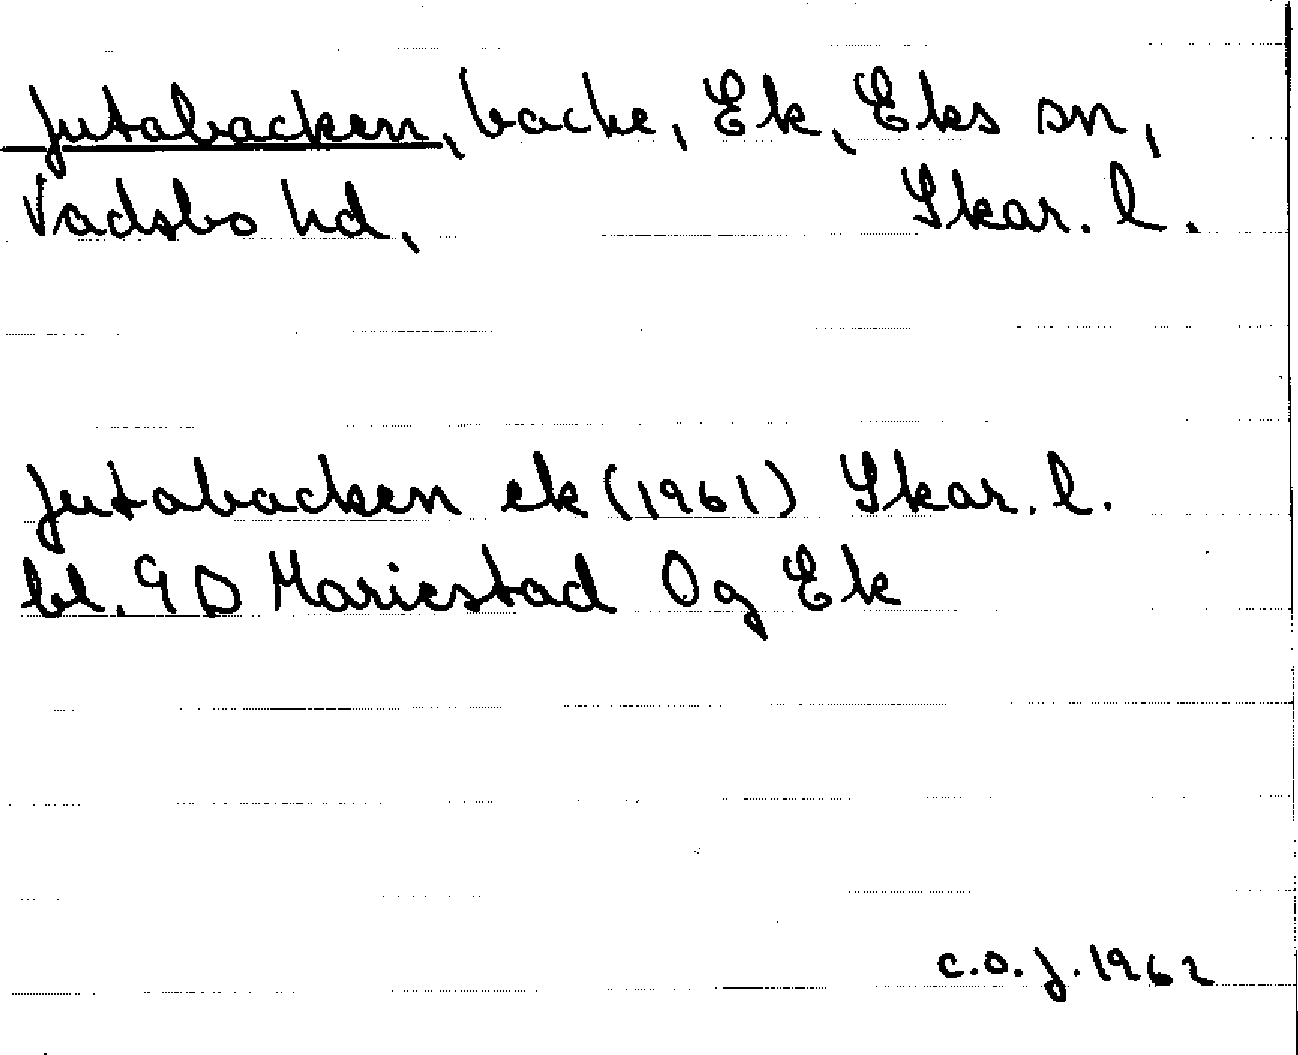 Jutabacken, backe, Ek, Eks sn,
Vadsbo hd, Skar. l.
Jutabacken ek (1961) Skar. l.
bl. 9D Mariestad Og Ek
C.O.J. 1962